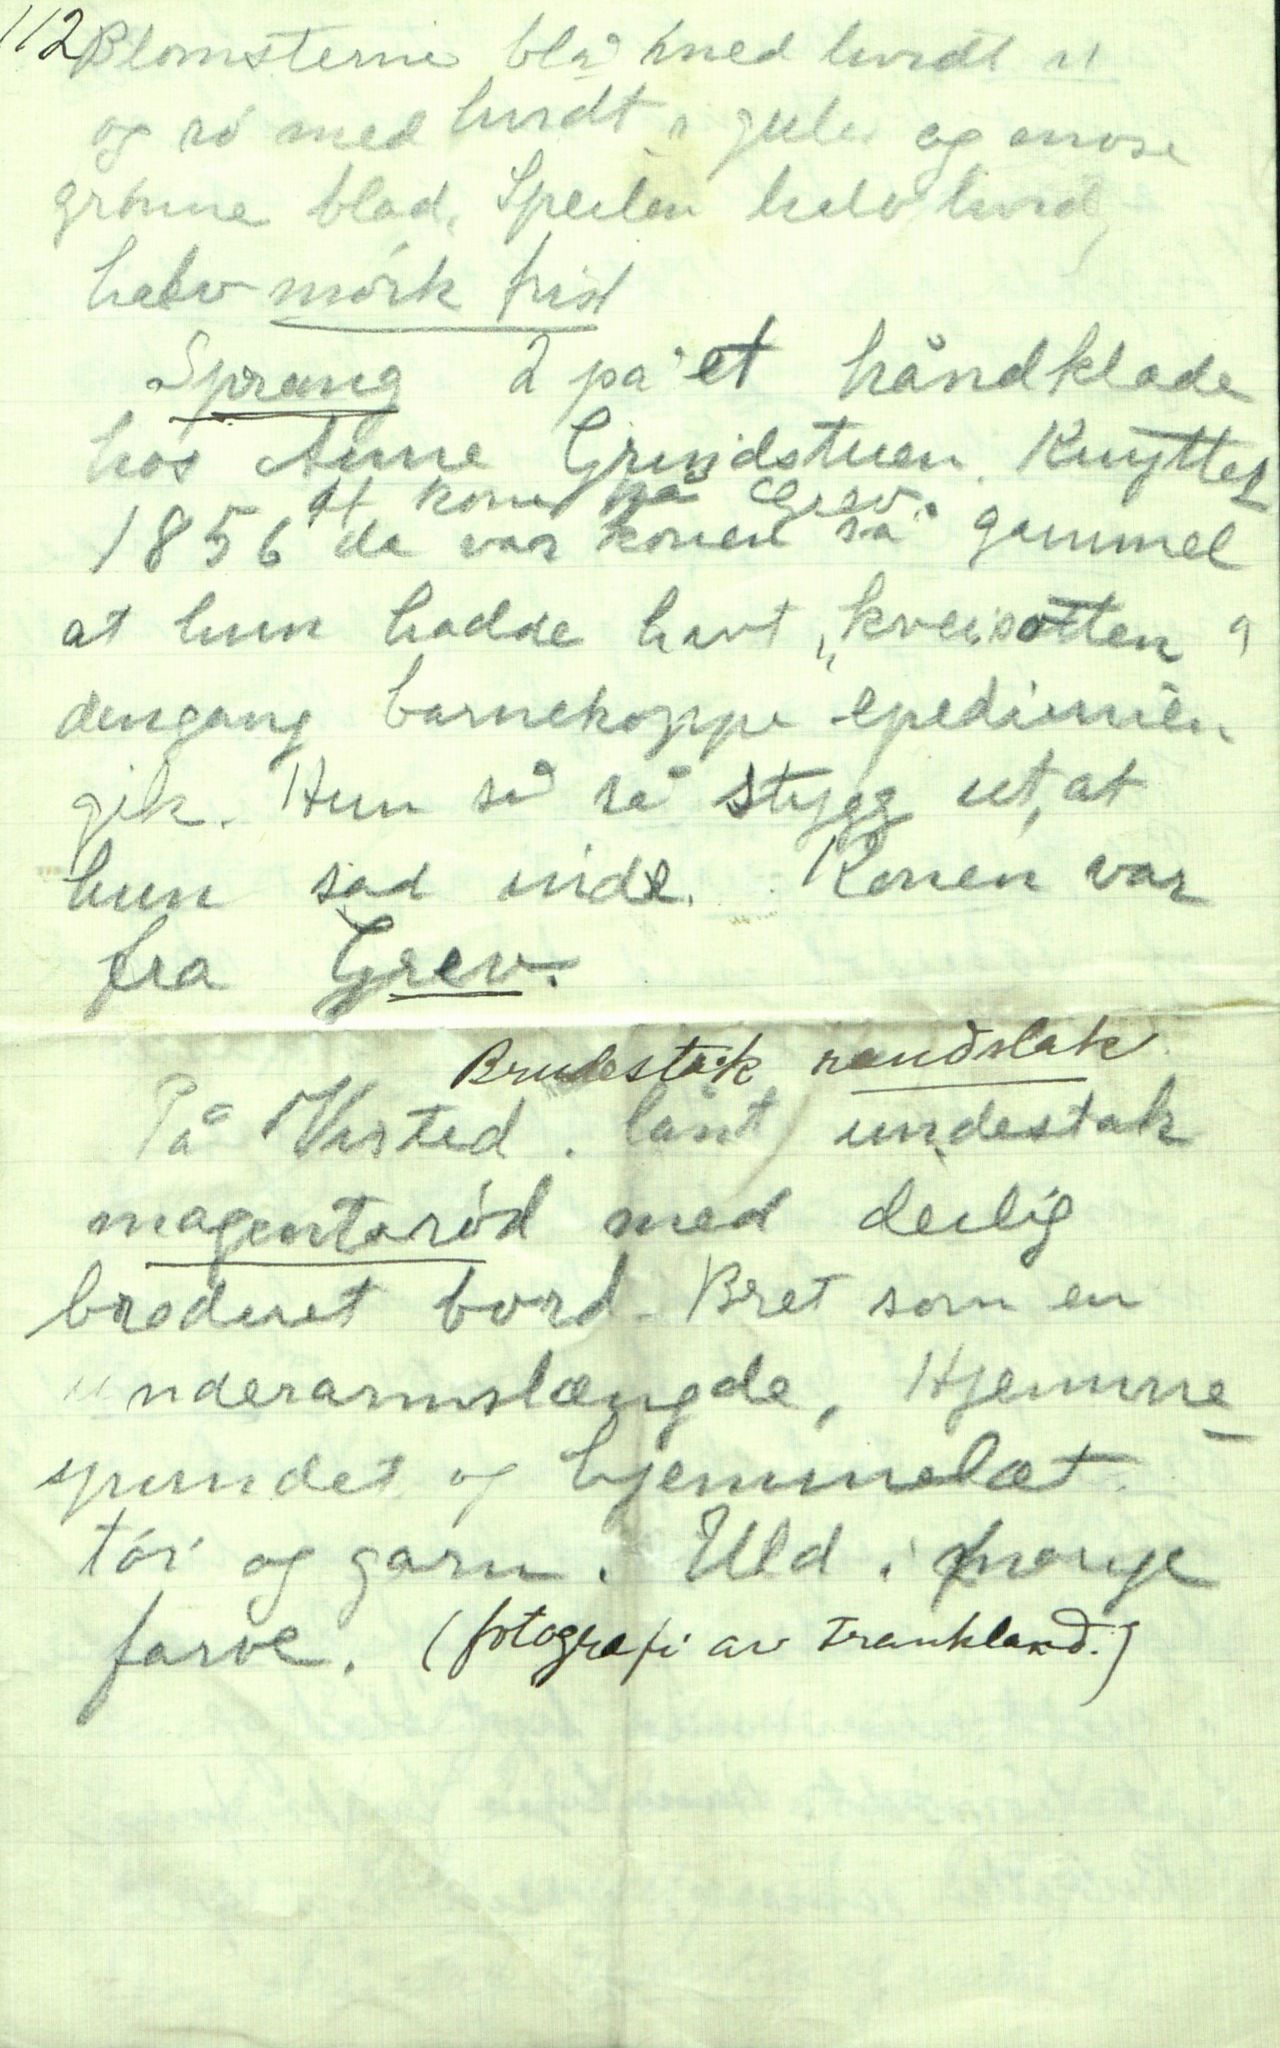 112
Blomsterne blå med hvidt i
og rø med hvidt, gule og mose
grønne blad, Speilen halv hvid,
halv mørk
Sprang 2 på et håndklade
hos Anne Grindstuen. Knyttet
af kone på Grev.
1856 da var konen så gammel
at hun hadde havt "kveisotten"
dengang barnekoppe epedimien
gik. Hun så så stygg ut, at
hun sad inde. Konen var
fra Grev.
Brudestak randstak
På Virsted. lånt undestak
magentarød med deilig
broderet bord. Bret som en
underarmslængde, Hjemme
spundet og hjemmelæt
tøi og garn. Uld i mange
farve. (fotografi av Trankland.)